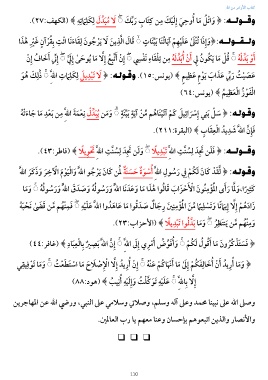 وقوله: ﴿ وَاتْلُ مَا أُوحِيَ إِلَيْكَ مِن كِتَابِ رَبِّكَ ۖ لَا مُبَدِّلَ لِكَلِمَاتِهِ ﴾ (الكهف:٢٧).
ولقوله: ﴿وَإِذَا تُتْلَىٰ عَلَيْهِمْ آيَاتُنَا بَيِّنَاتٍ ۙ قَالَ الَّذِينَ لَا يَرْجُونَ لِقَاءَنَا ائْتِ بِقُرْآنٍ غَيْرِ هَٰذَا
أَوْ بَدِّلْهُ ۚ قُلْ مَا يَكُونُ لِي أَنْ أُبَدِّلَهُ مِن تِلْقَاءِ نَفْسِي ۖ إِنْ أَتَّبِعُ إِلَّا مَا يُوحَىٰ إِلَيَّ ۖ إِنِّي أَخَافُ إِنْ
عَصَيْتُ رَبِّي عَذَابَ يَوْمٍ عَظِيمٍ ﴾ (يونس:١٥). وقوله: ﴿ لَا تَبْدِيلَ لِكَلِمَاتِ اللَّهِ ۚ ذَٰلِكَ هُوَ
الْفَوْزُ الْعَظِيمُ ﴾ (يونس:٦٤).
وقوله: ﴿ سَلْ بَنِي إِسْرَائِيلَ كَمْ آتَيْنَاهُم مِّنْ آيَةٍ بَيِّنَةٍ ۗ وَمَن يُبَدِّلْ نِعْمَةَ اللَّهِ مِن بَعْدِ مَا جَاءَتْهُ
فَإِنَّ اللَّهَ شَدِيدُ الْعِقَابِ ﴾ (البقرة:٢١١).
وقوله: ﴿ فَلَن تَجِدَ لِسُنَّتِ اللَّهِ تَبْدِيلًا ۖ وَلَن تَجِدَ لِسُنَّتِ اللَّهِ تَحْوِيلًا ﴾ (فاطر:٤٣).
وقوله: ﴿ لَّقَدْ كَانَ لَكُمْ فِي رَسُولِ اللَّهِ أُسْوَةٌ حَسَنَةٌ لِّمَن كَانَ يَرْجُو اللَّهَ وَالْيَوْمَ الْآخِرَ وَذَكَرَ اللَّهَ
كَثِيرًا. وَلَمَّا رَأَى الْمُؤْمِنُونَ الْأَحْزَابَ قَالُوا هَٰذَا مَا وَعَدَنَا اللَّهُ وَرَسُولُهُ وَصَدَقَ اللَّهُ وَرَسُولُهُ ۚ وَمَا
زَادَهُمْ إِلَّا إِيمَانًا وَتَسْلِيمًا مِّنَ الْمُؤْمِنِينَ رِجَالٌ صَدَقُوا مَا عَاهَدُوا اللَّهَ عَلَيْهِ ۖ فَمِنْهُم مَّن قَضَىٰ نَحْبَهُ
وَمِنْهُم مَّن يَنتَظِرُ ۖ وَمَا بَدَّلُوا تَبْدِيلًا ﴾ (الأحزاب:٢٣).
﴿ فَسَتَذْكُرُونَ مَا أَقُولُ لَكُمْ ۚ وَأُفَوِّضُ أَمْرِي إِلَى اللَّهِ ۚ إِنَّ اللَّهَ بَصِيرٌ بِالْعِبَادِ ﴾ (غافر:٤٤)
﴿ وَمَا أُرِيدُ أَنْ أُخَالِفَكُمْ إِلَىٰ مَا أَنْهَاكُمْ عَنْهُ ۚ إِنْ أُرِيدُ إِلَّا الْإِصْلَاحَ مَا اسْتَطَعْتُ ۚ وَمَا تَوْفِيقِي
إِلَّا بِاللَّهِ ۚ عَلَيْهِ تَوَكَّلْتُ وَإِلَيْهِ أُنِيبُ ﴾ (هود:٨٨)
وصلى الله على نبينا محمد وعلى آله وسلم، وصلاتي وسلامي على النبي، ورضي الله عن المهاجرين
والأنصار والذين اتبعوهم بإحسان وعنا معهم يا رب العالمين.